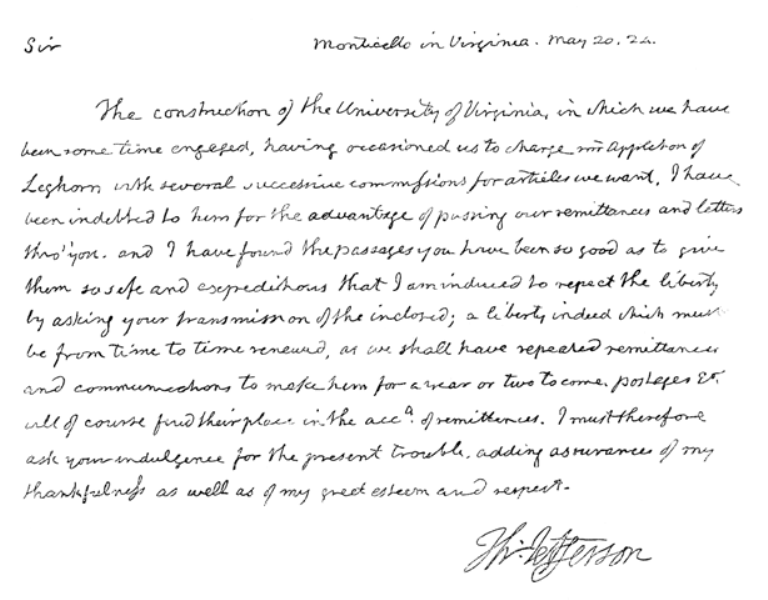 Sir Monticello in Virginia. May 20. 24.
The construction of the University of Virginia, in which we have
been some time engaged, having occasioned us to charge mr Appleton of
Leghorn with several successive commissions for articles we want, I have
been indebted to him for the advantage of passing our remittances and letters
thro' you. and I have found the passages you have been so good as to give
them so safe and expeditious that I am induced to repeat the liberty
by asking your transmission of the inclosed; a liberty indeed which must
be from time to time renewed, as we shall have repeated remittances
and communications to make him for a year or two to come. postages &c.
will of course find their place in the acct. of remittances. I must therefore
ask your indulgence for the present trouble, adding assurances of my
thankfulness as well as of my great esteem and respect.
Th: Jefferson